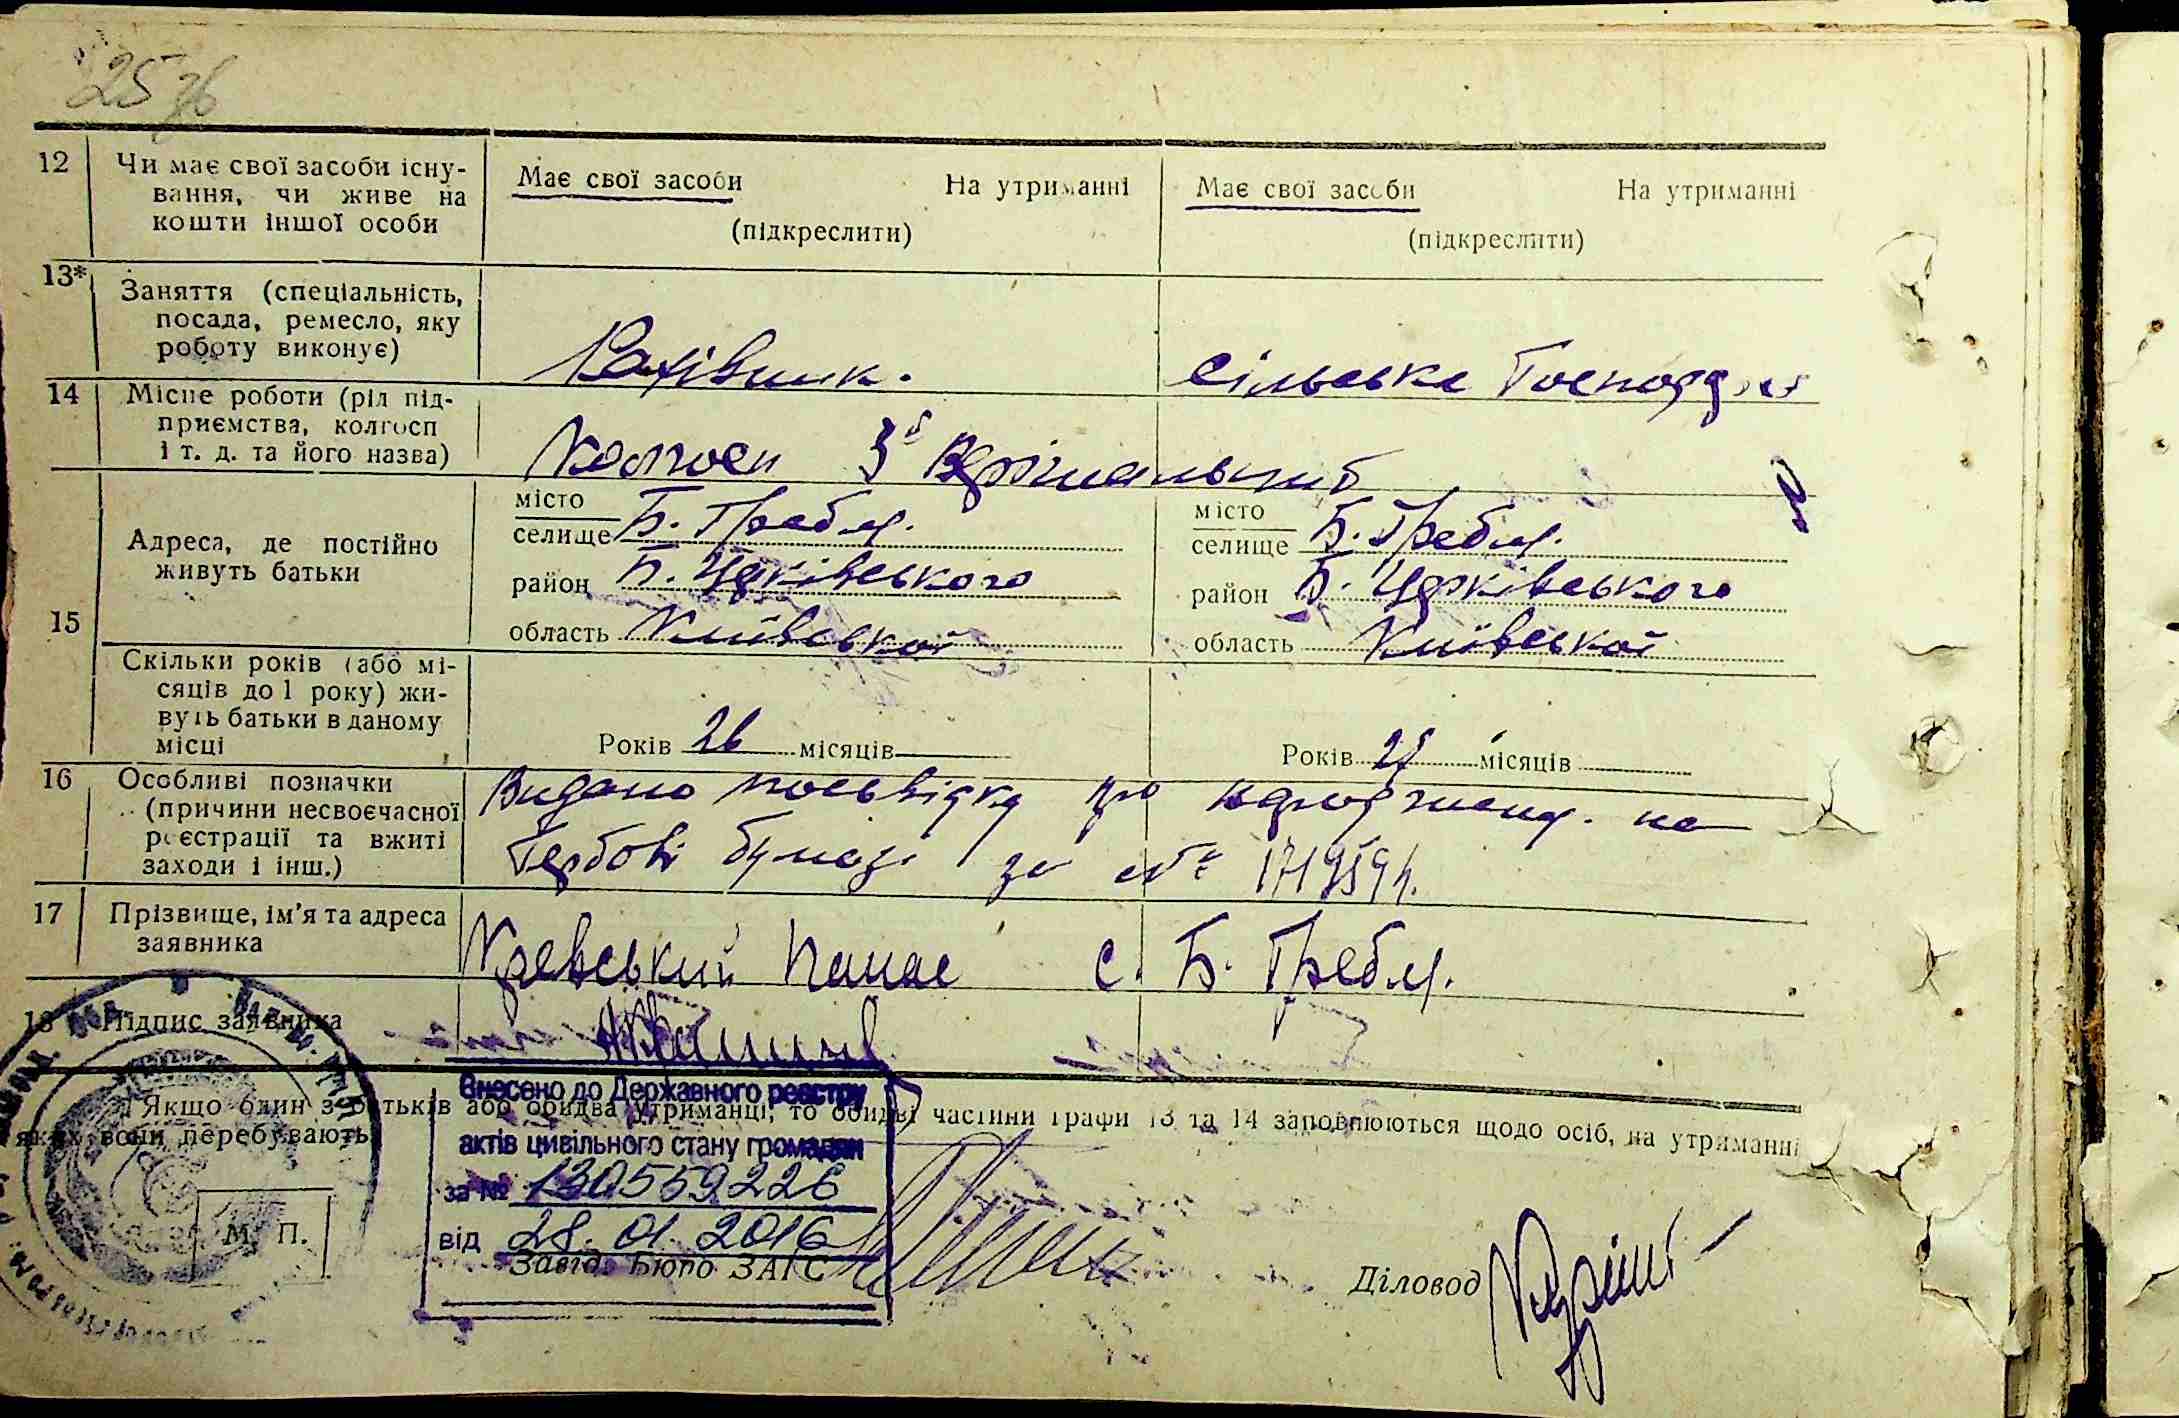 25 зв
12 Чи має свої засоби існу-
вання, чи живе на
кошти іншої особи
Має свої засоби На утриманні
(підкреслити)
Має свої засоби На утриманні
(підкреслити)
13* Заняття (спеціальність,
посада, ремесло, яку
роботу виконує)
Рахівник.
Сільське Господ
14 Місце роботи (рід під-
приємства, колгосп
і т. д. та його назва)
Колгосп 3й Врішальний
15 Адреса, де постійно
живуть батьки
місто
селище Б. Гребля.
район Б. Церківського
область Київської
місто
селище Б. Гребля.
район Б. Церківського
область Київської
Скільки років (або мі-
сяців до 1 року) жи-
вуть батьки в даному
місці
Років 26 місяців
Років місяців
16 Особливі позначки
(причини несвоєчасної
реєстрації та вжиті
заходи і інш.)
Видано посьвідку про народження. на
Гербові бумазі за № 1719594.
17 Прізвище, ім'я та адреса
заявника
Кревський Панас с. Б. Гребля.
18 Підпис заявника
Якщо один з батьків або обидва утриманці, то обидві частини графи 13 та 14 заповнюються щодо осіб, на утриманні
яких вони перебувають
Внесено до Державного реєстру
актів цивільного стану громадян
за № 130559226
від 28.01.2016
М. П.
Завід. Бюро ЗАГС
Діловод